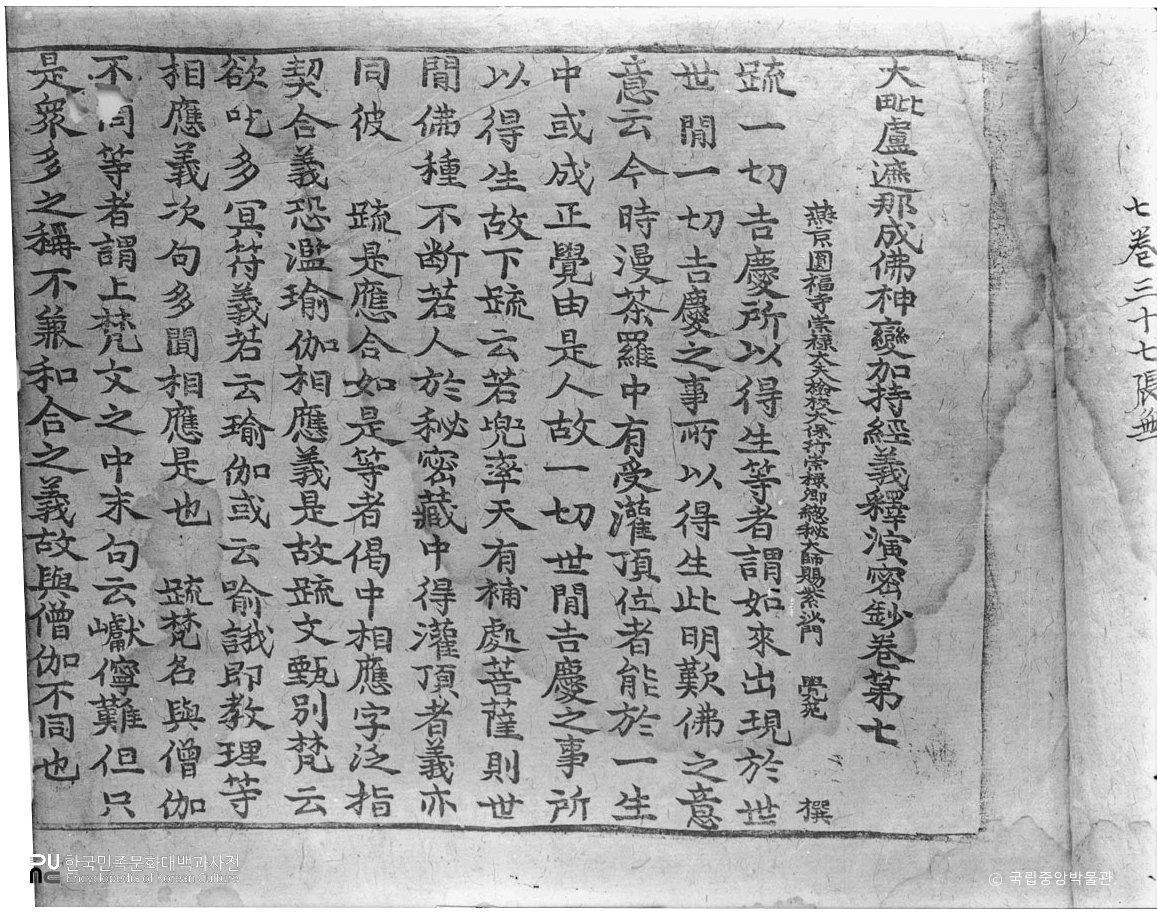 七卷 三十七張 無
大毗盧遮那成佛神變加持經義釋演密鈔卷第七
燕京圓福寺崇祿大夫檢校太保行崇祿卿總秘大師賜紫沙門 覺苑 撰
䟽一切吉慶所以得生等者謂如來出現於世
世間一切吉慶之事所以得生此明歎佛之意
意云今時漫茶羅中有受灌頂位者能於一生
中或成正覺由是人故一切世間吉慶之事所
以得生故下䟽云若兜率天有補處菩薩則世
間佛種不断若人於秘密藏中得灌頂者義亦
同彼 䟽是應合如是等者偈中相應字泛指
契合義恐濫瑜伽相應義是故䟽文甄別梵云
欲吃多冥符義若云瑜伽或云喻誐即教理等
相應義次句多聞相應是也 䟽梵名與僧伽
不同等者謂上梵文之中末句云巘儜難但只
是眾多之稱不兼和合之義故與僧伽不同也
한국민족문화대백과사전
Encyclopedia of Korean Culture
© 국립중앙박물관